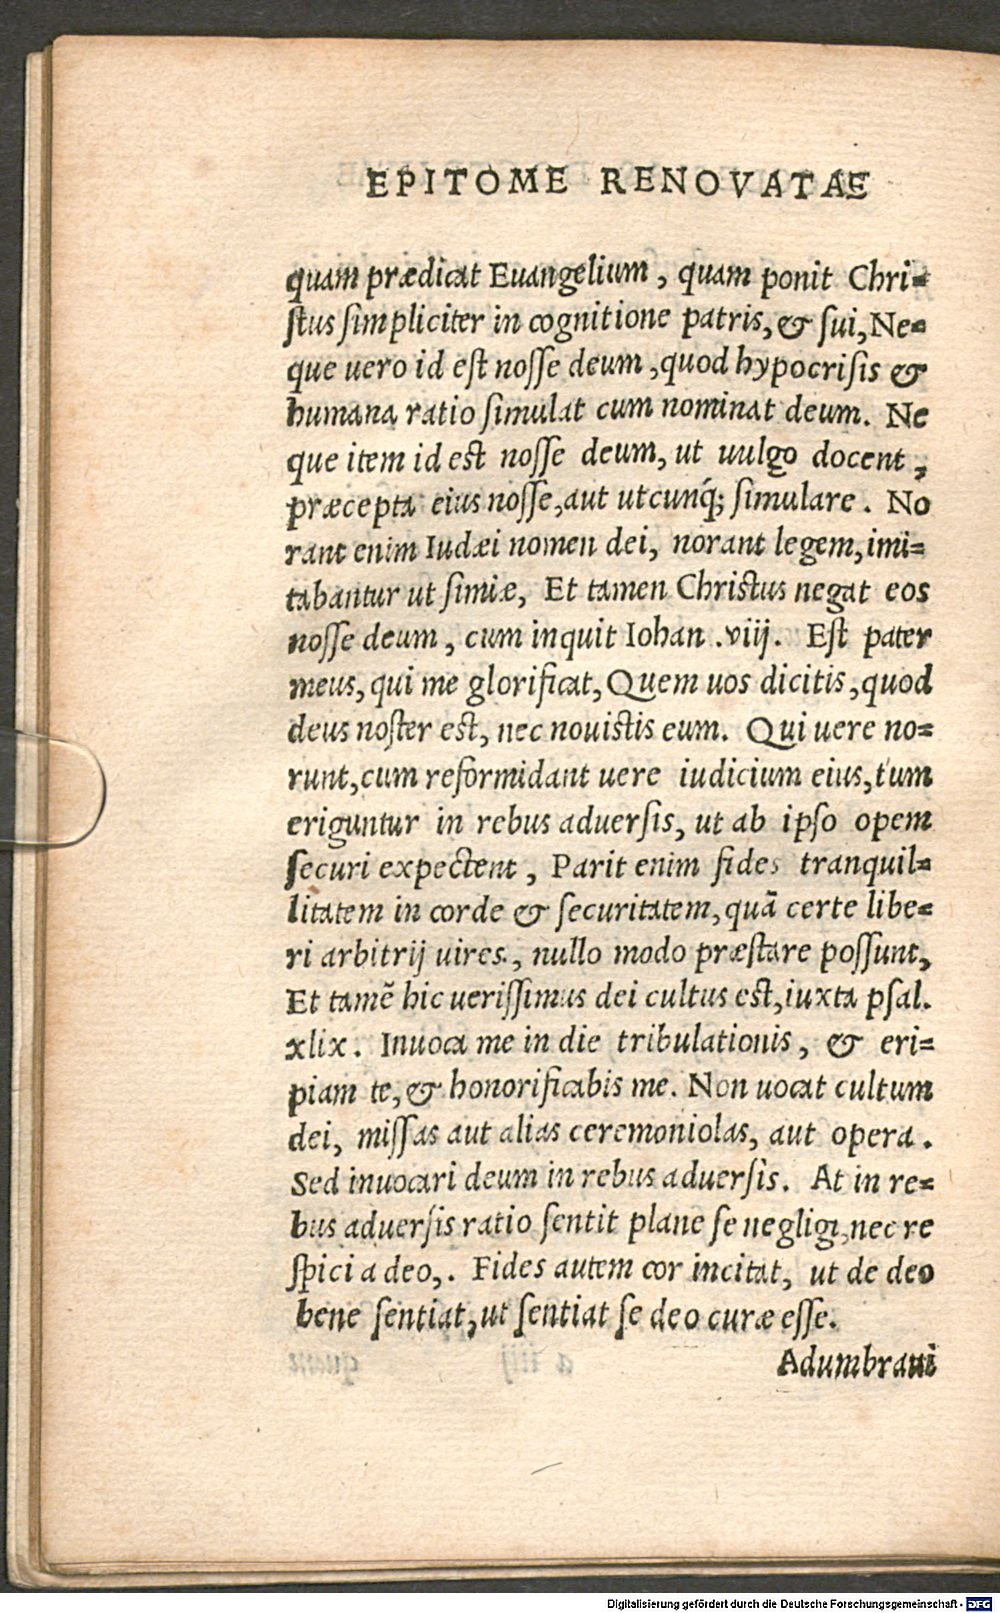 EPITOME RENOVATAE
quam prædicat Euangelium, quam ponit Chri=
ſtus ſimpliciter in cognitione patris, & ſui, Ne=
que uero id eſt noſſe deum, quod hypocriſis &
humana ratio ſimulat cum nominat deum. Ne
que item id est noſſe deum, ut uulgo docent,
præcepta eius noſſe, aut utcunq́; ſimulare. No
rant enim Iudæi nomen dei, norant legem, imi=
tabantur ut ſimiæ, Et tamen Christus negat eos
noſſe deum, cum inquit Iohan .viij. Eſt pater
meus, qui me glorificat, Quem uos dicitis, quod
deus noſter est, nec nouistis eum. Qui uere no=
runt, cum reformidant uere iudicium eius, tum
eriguntur in rebus aduerſis, ut ab ipſo opem
ſecuri expectent, Parit enim fides tranquil=
litatem in corde & ſecuritatem, quā certe libe=
ri arbitrij uires., nullo modo præſtare poſſunt,
Et tamē hic ueriſſimus dei cultus est, iuxta pſal.
xlix. Inuoca me in die tribulationis, & eri=
piam te, & honorificabis me. Non uocat cultum
dei, miſſas aut alias ceremoniolas, aut opera.
Sed inuocari deum in rebus aduerſis. At in re=
bus aduerſis ratio ſentit plane ſe negligi, nec re
ſpici a deo,. Fides autem cor incitat, ut de deo
bene ſentiat, ut ſentiat ſe deo curæ eſſe.
Adumbraui
Digitalisierung gefördert durch die Deutsche Forschungsgemeinschaft - DFG